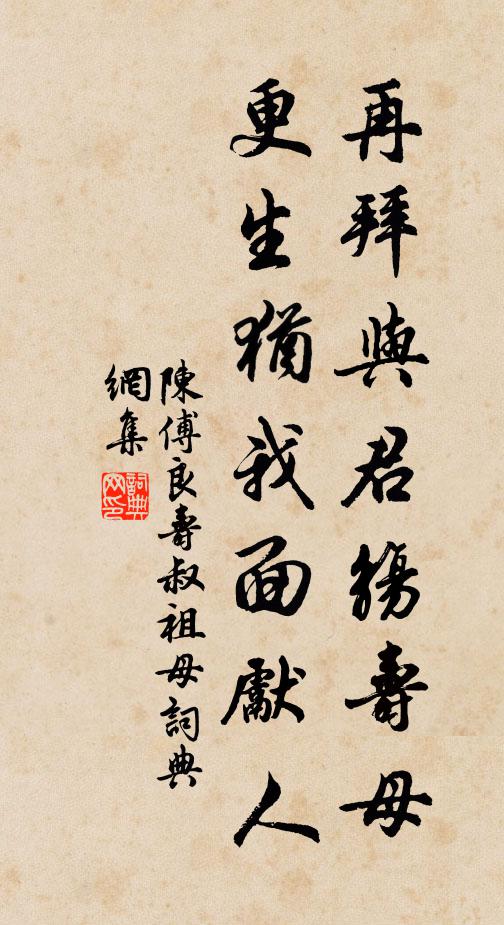 再拜與君觴壽母
更生猶我面獻人
陳傅良壽叔祖母詞典
網集
詞典
网印